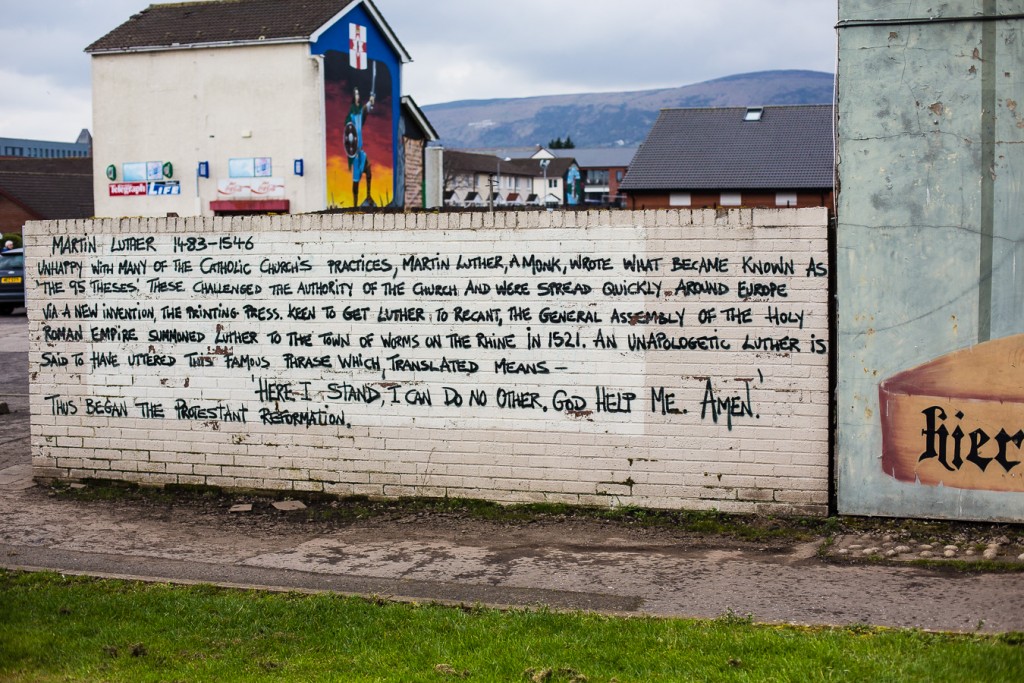 Telegraph
LIFE
MARTIN LUTHER 1483-1546
UNHAPPY WITH MANY OF THE CATHOLIC CHURCH'S PRACTICES, MARTIN LUTHER, A MONK, WROTE WHAT BECAME KNOWN AS
'THE 95 THESES'. THESE CHALLENGED THE AUTHORITY OF THE CHURCH AND WERE SPREAD QUICKLY AROUND EUROPE
VIA A NEW INVENTION, THE PRINTING PRESS. KEEN TO GET LUTHER TO RECANT, THE GENERAL ASSEMBLY OF THE HOLY
ROMAN EMPIRE SUMMONED LUTHER TO THE TOWN OF WORMS ON THE RHINE IN 1521. AN UNAPOLOGETIC LUTHER IS
SAID TO HAVE UTTERED THIS FAMOUS PHRASE WHICH, TRANSLATED MEANS –
'HERE I STAND, I CAN DO NO OTHER. GOD HELP ME. AMEN.'
THUS BEGAN THE PROTESTANT REFORMATION.
hier